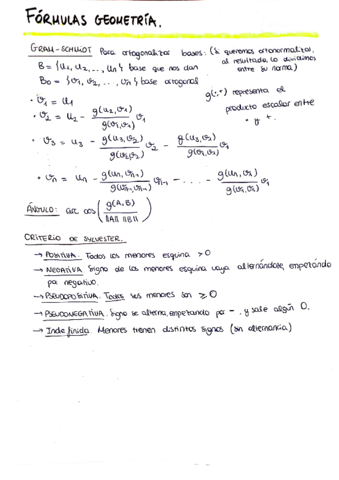 FÓRMULAS GEOMETRÍA.
GRAM-SCHMIDT Para ortogonalizar bases: (Si queremos ortonormalizar,
B = {u₁, u₂, ..., uₙ} base que nos dan al resultado, lo dividimos entre su norma)
B₀ = {v₁, v₂, ..., vₙ} base ortogonal
g(·,*) representa el producto escalar entre · y *.
• v₁ = u₁
• v₂ = u₂ - g(u₂,v₁)/g(v₁,v₁) v₁
• v₃ = u₃ - g(u₃,v₂)/g(v₂,v₂) v₂ - g(u₃,v₁)/g(v₁,v₁) v₁
• vₙ = uₙ - g(uₙ,vₙ₋₁)/g(vₙ₋₁,vₙ₋₁) vₙ₋₁ - .... - g(uₙ,v₁)/g(v₁,v₁) v₁
ÁNGULO: arc cos (g(A,B)/‖A‖ ‖B‖)
CRITERIO DE SYLVESTER.
→ POSITIVA. Todos los menores esquina > 0
→ NEGATIVA. Signo de los menores esquina vaya alternándose, empezando
por negativo.
→ PSEUDOPOSITIVA. Todos sus menores son ≥ 0
→ PSEUDONEGATIVA. Signo se alterna, empezando por -, y sale algún 0.
→ Indefinida. Menores tienen distintos signos (sin alternancia)